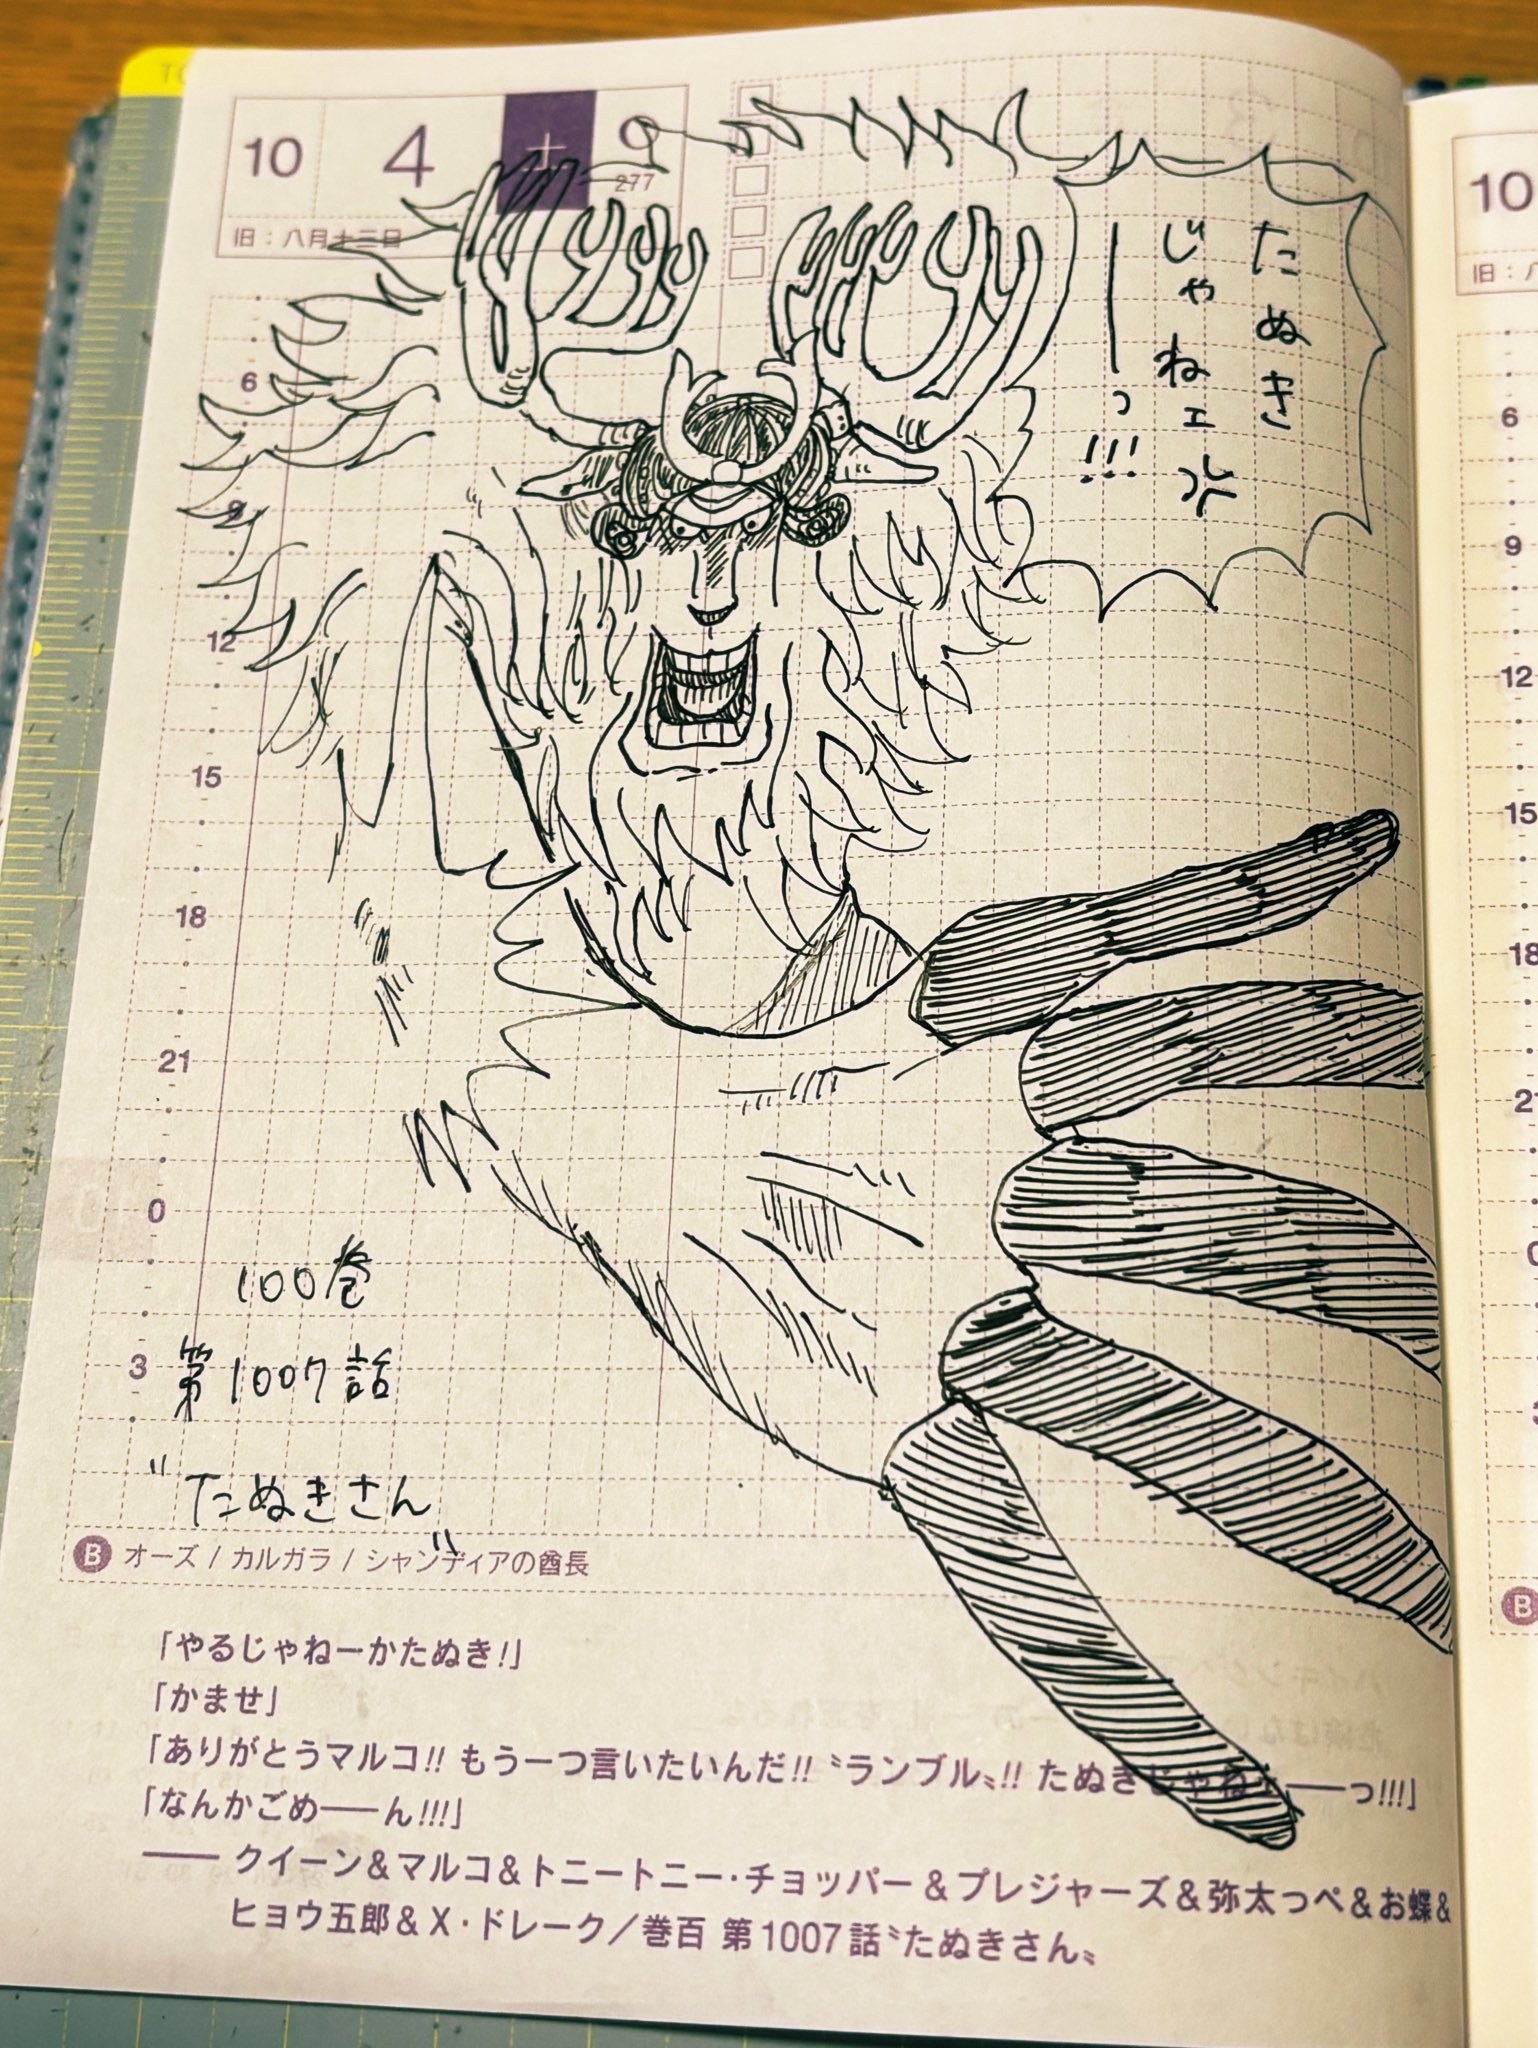 10 4 土
277
旧：八月十三日
たぬき
じゃねェが
ーーーっ!!!
6
9
12
15
18
21
0
3
100巻
第1007話
"たぬきさん"
B オーズ / カルガラ / シャンディアの酋長
「やるじゃねーかたぬき!」
「かませ」
「ありがとうマルコ!! もう一つ言いたいんだ!! 〝ランブル〟!! たぬきじゃねェ――っ!!!」
「なんかごめ――ん!!!」
―― クイーン&マルコ&トニートニー・チョッパー&プレジャーズ&弥太っぺ&お蝶&
ヒョウ五郎&X・ドレーク／巻百 第1007話〝たぬきさん〟
10
旧：八
6
9
12
15
18
B